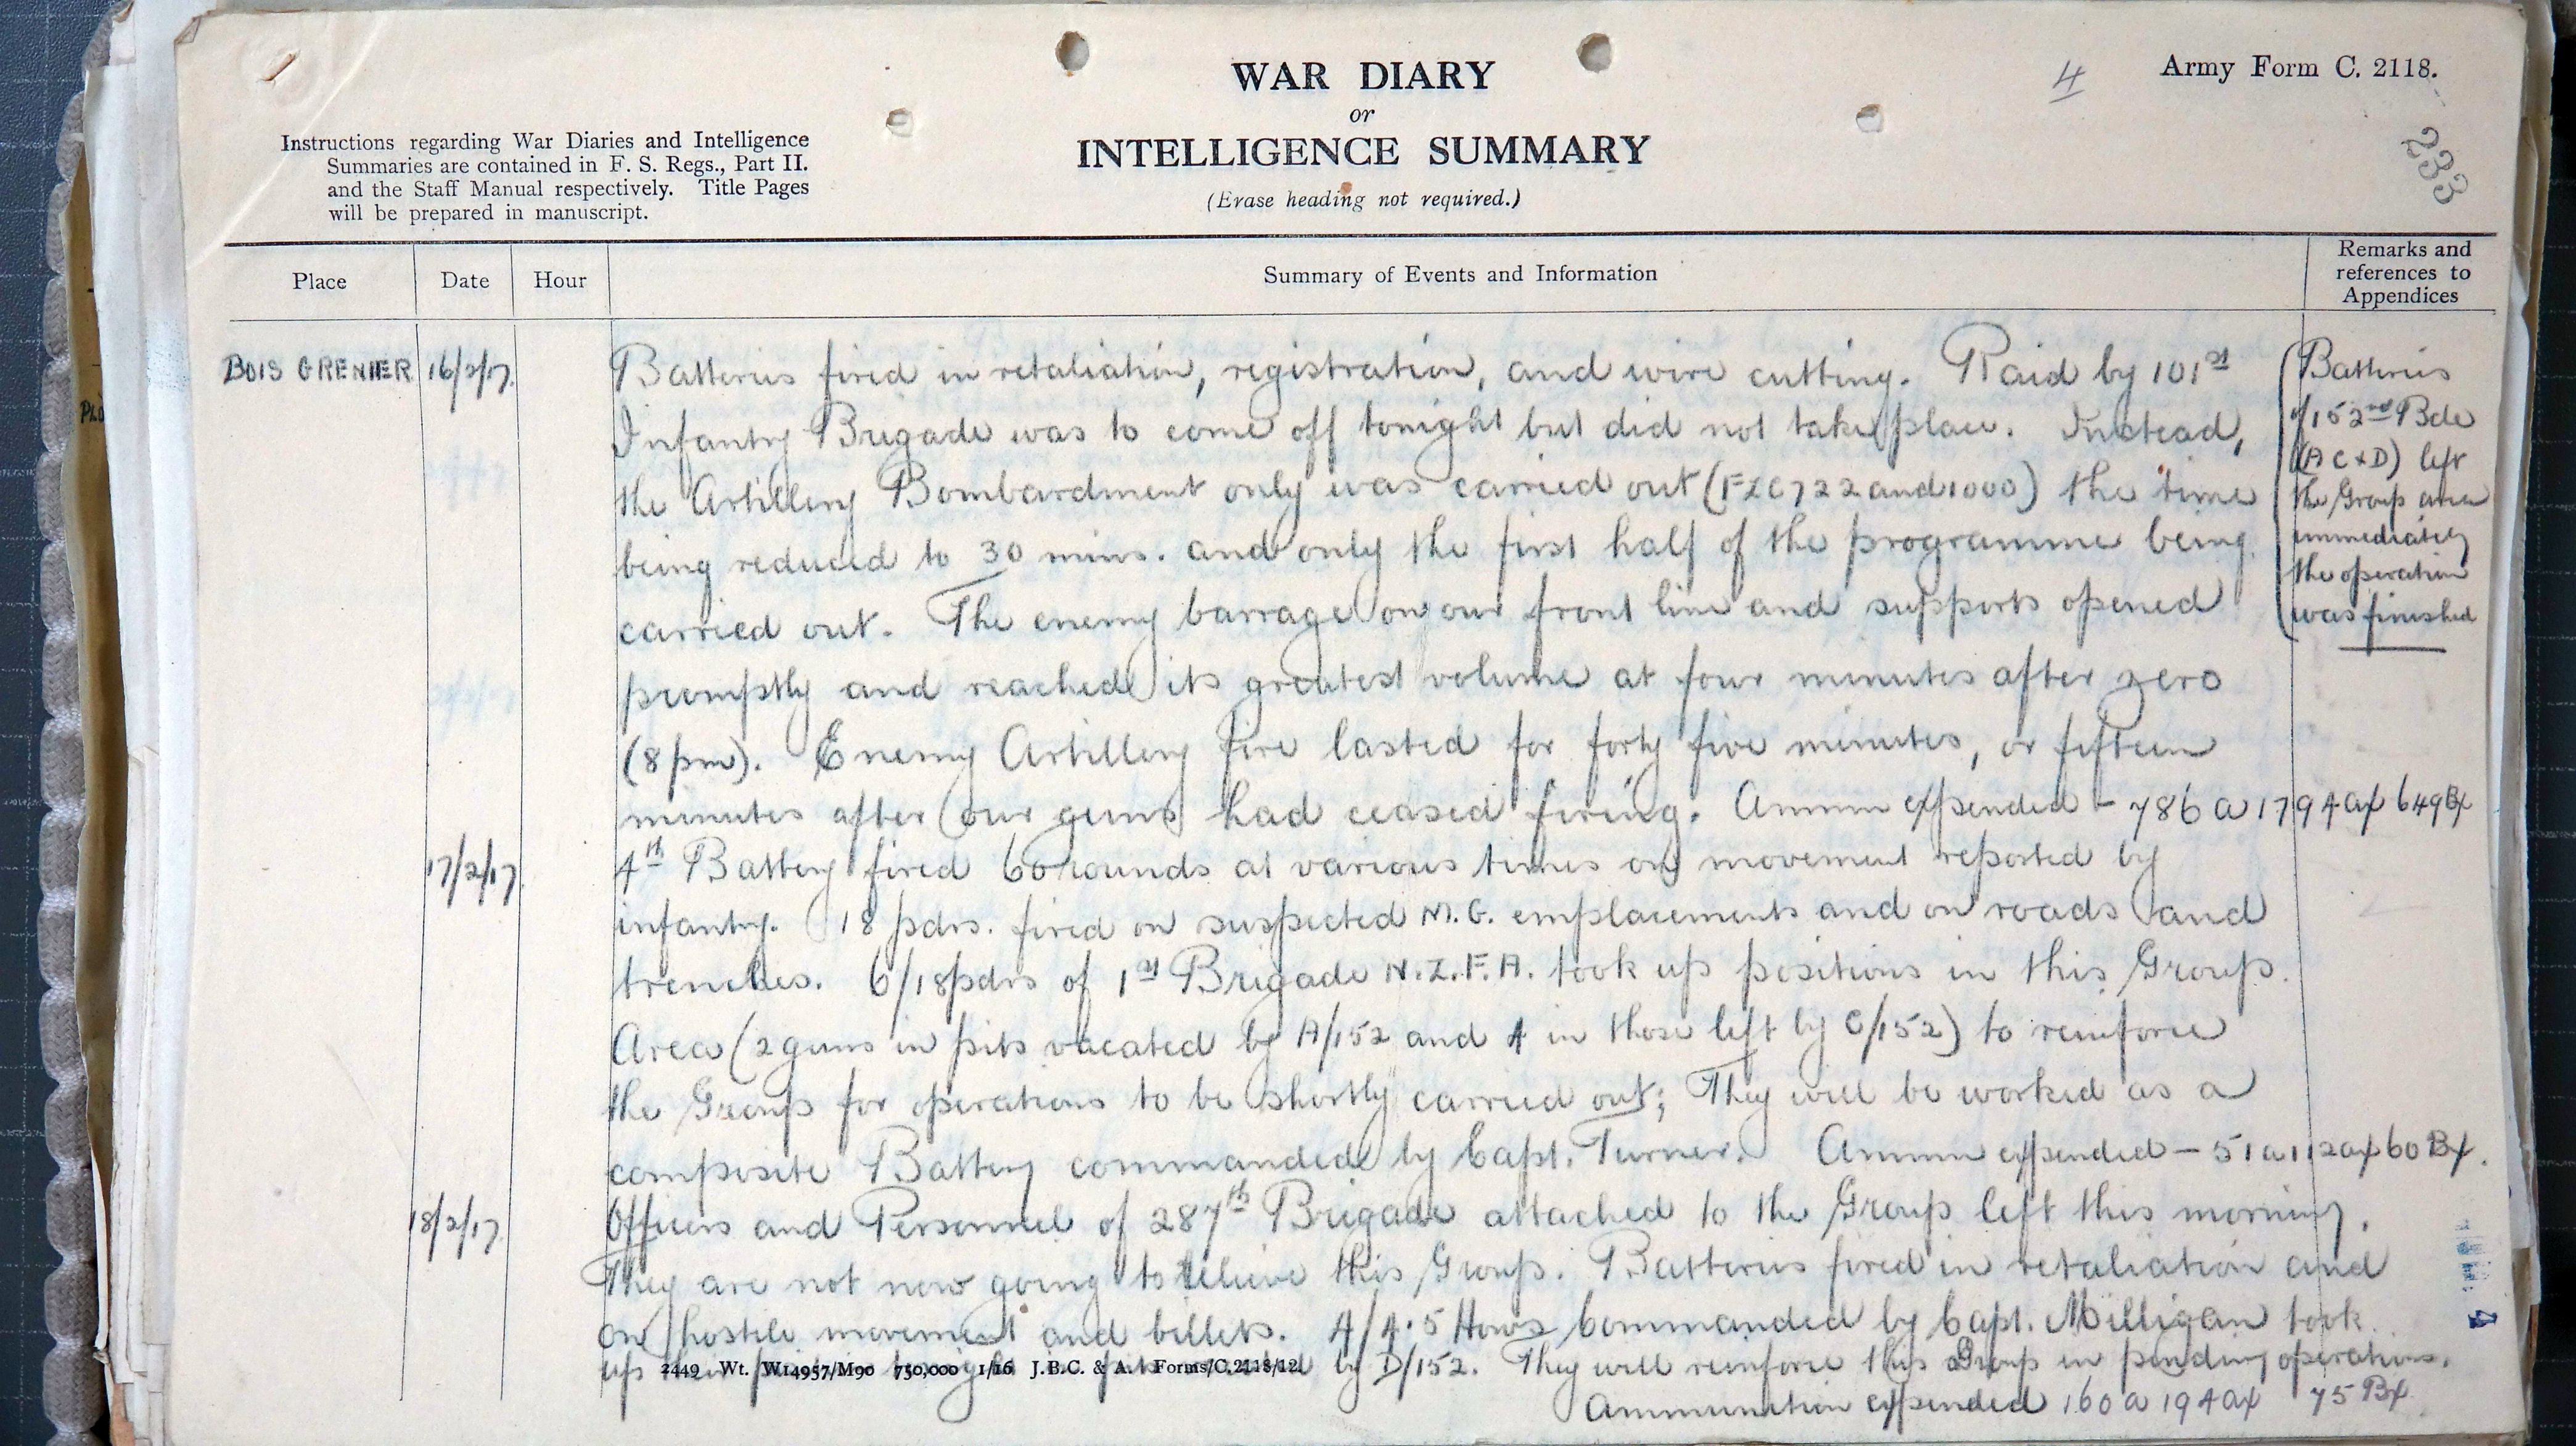 WAR DIARY
or
INTELLIGENCE SUMMARY
(Erase heading not required.)
4
Army Form C. 2118.
233
Instructions regarding War Diaries and Intelligence
Summaries are contained in F. S. Regs., Part II.
and the Staff Manual respectively. Title Pages
will be prepared in manuscript.
Place
Date
Hour
Summary of Events and Information
Remarks and
references to
Appendices
BOIS GRENIER 16/2/17. Batteries fired in retaliation, registration, and wire cutting. Raid by 101st
Infantry Brigade was to come off tonight but did not take place. Instead,
the Artillery Bombardment only was carried out (FZC722 and 1000) the time
being reduced to 30 mins. and only the first half of the programme being
carried out. The enemy barrage on our front line and supports opened
promptly and reached its greatest volume at four minutes after zero
(8 pm). Enemy Artillery fire lasted for forty five minutes, or fifteen
minutes after our guns had ceased firing. Ammn expended - 786 a 1794 ax 649 Bx
Batteries
of 152nd Bde
(A C + D) left
the Group area
immediately
the operation
was finished
17/2/17. 4th Battery fired 60 rounds at various times on movement reported by
infantry. 18 pdrs. fired on suspected M.G. emplacements and on roads and
trenches. 6/18pdrs of 1st Brigade N.Z.F.A. took up positions in this Group.
Area (2 guns in pits vacated by A/152 and 4 in those left by C/152) to reinforce
the Group for operations to be shortly carried out; They will be worked as a
composite Battery commanded by Capt. Turner. Ammn expended - 51 a 112 ax 60 Bx.
18/2/17. Officers and Personnel of 287th Brigade attached to the Group left this morning.
They are not now going to relieve this Group. Batteries fired in retaliation and
on hostile movement and billets. 4/4.5 Hows Commanded by Capt. Milligan took
up by D/152. They will reinforce this Group in pending operations.
2449 Wt. W14957/M90 750,000 1/16 J.B.C. & A. Forms/C.2118/12.
Ammunition expended 160 a 194 ax 75 Bx